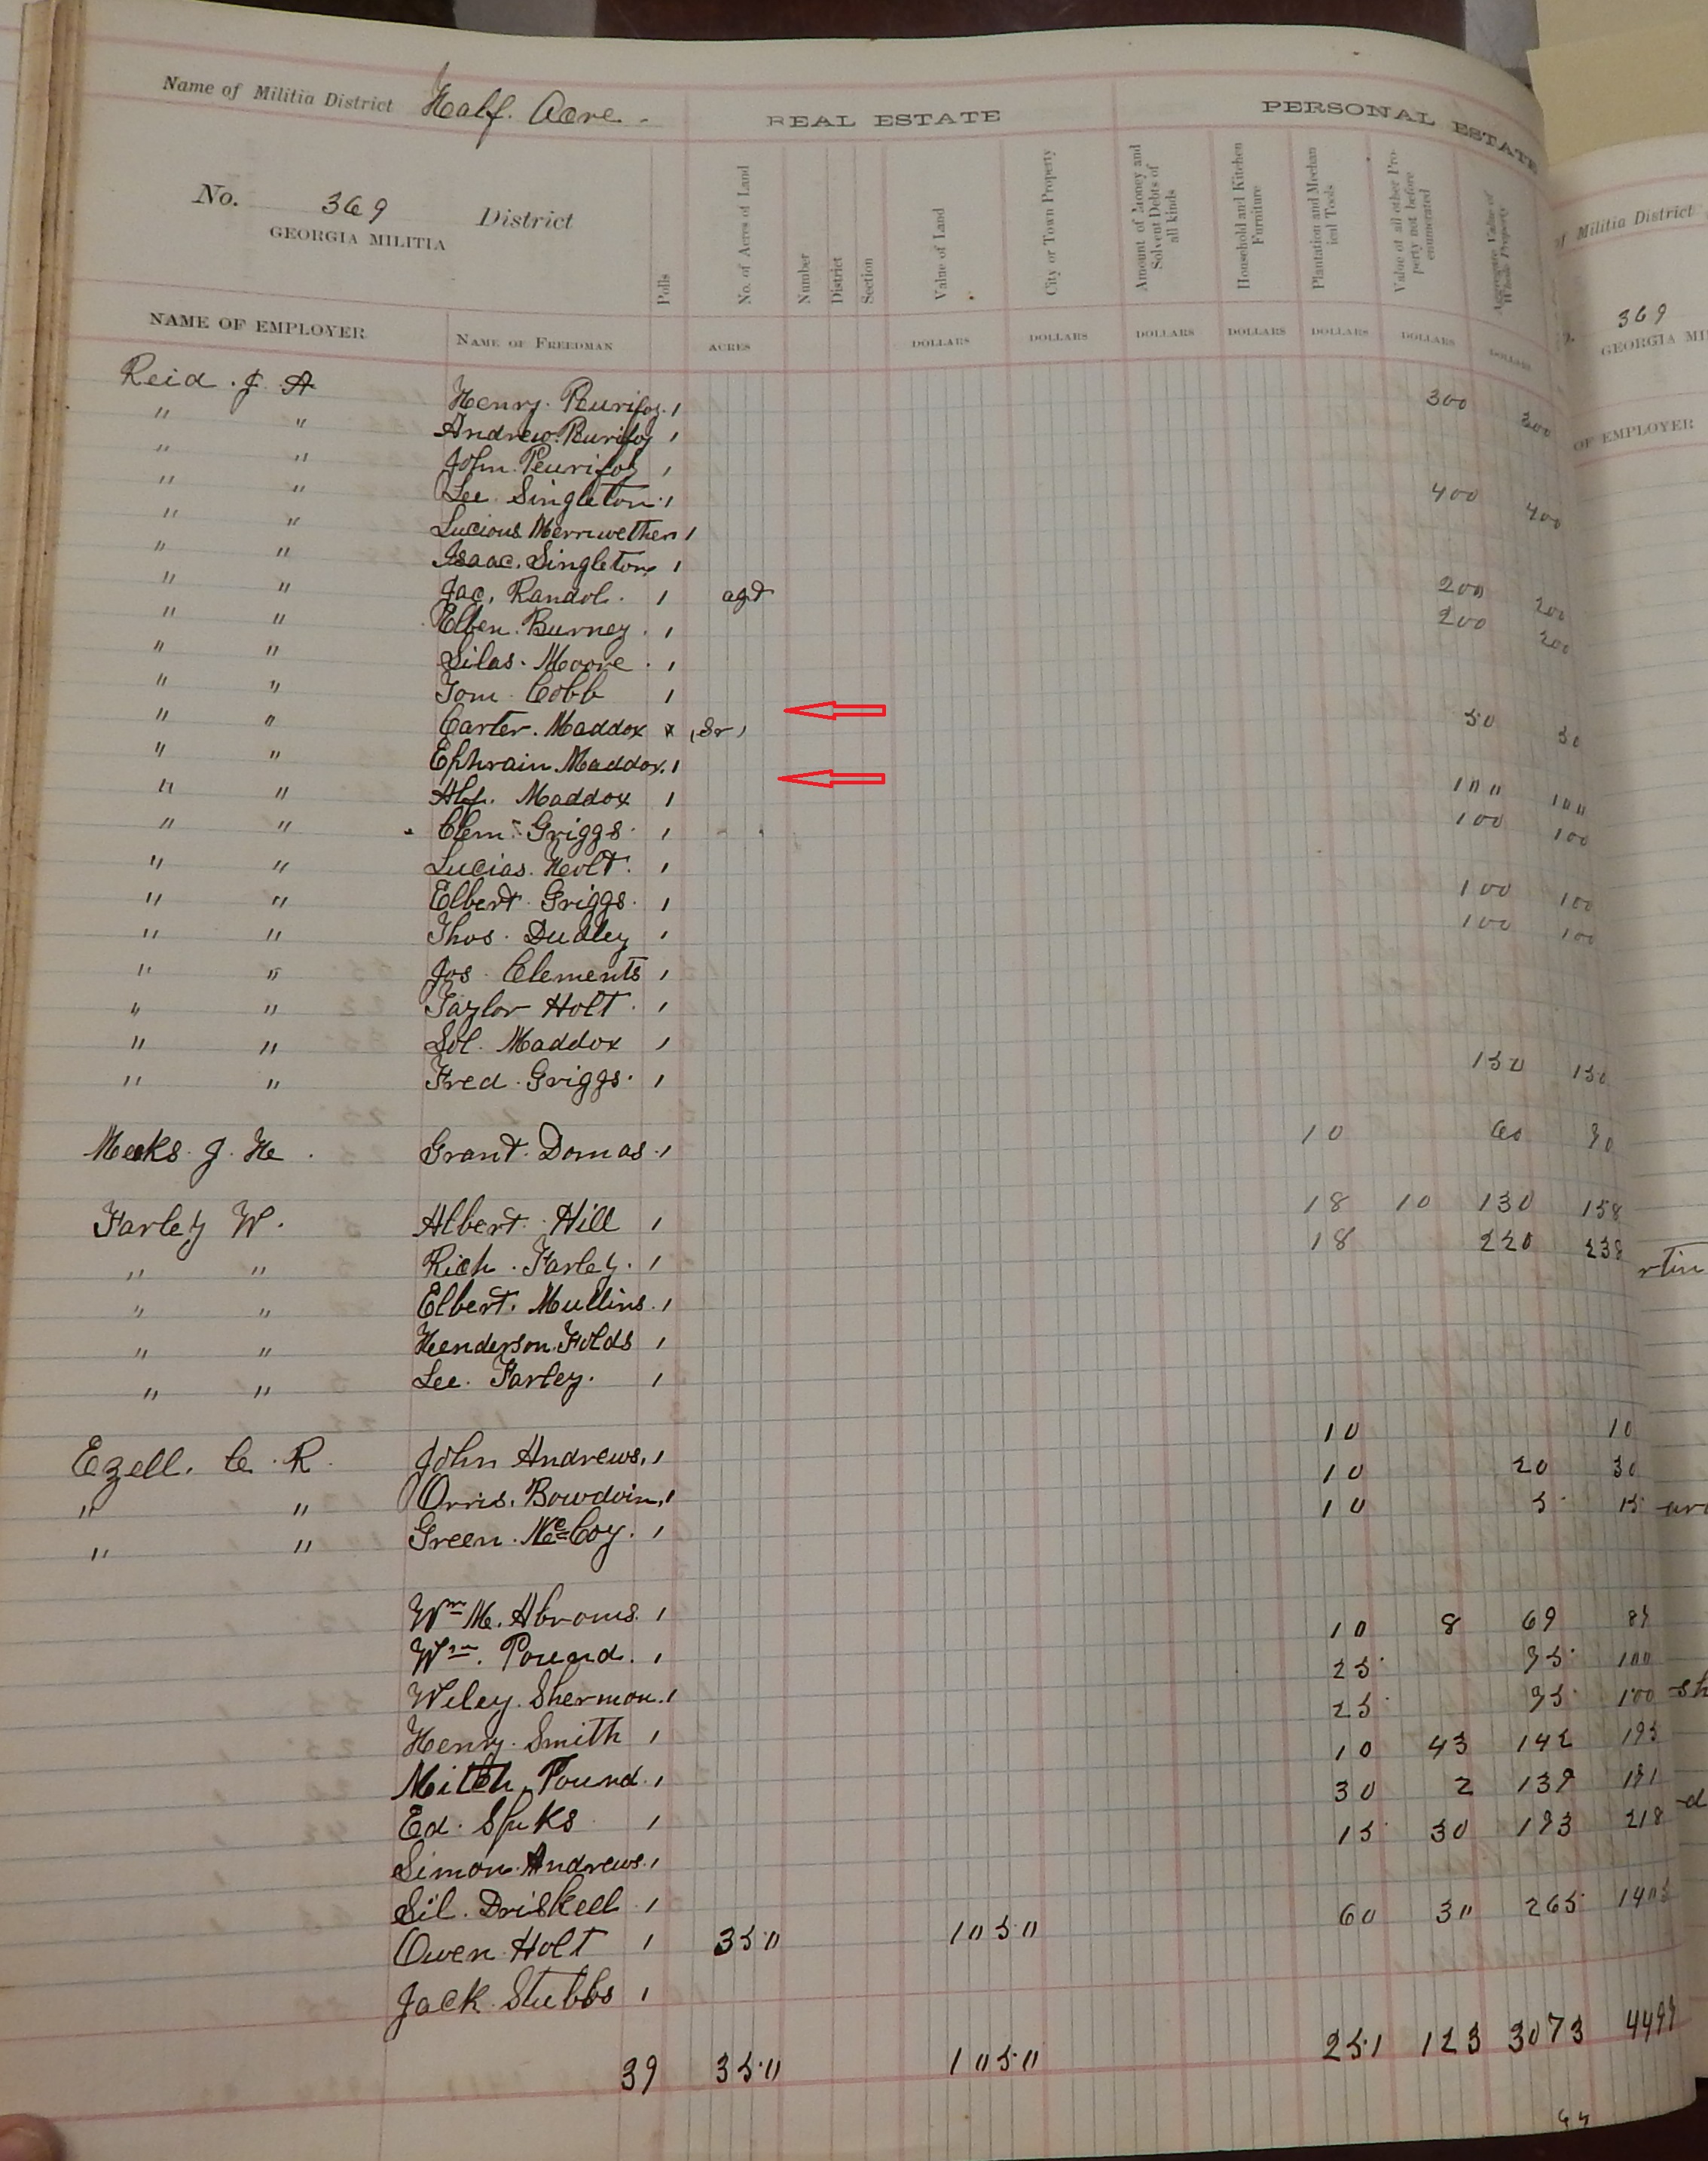 Name of Militia District Half. Acre.
REAL ESTATE
PERSONAL ESTATE
No. 369 District
GEORGIA MILITIA
Polls
No. of Acres of Land
Number
District
Section
Value of Land
City or Town Property
Amount of Money and Solvent Debts of all kinds
Household and Kitchen Furniture
Plantation and Mechanical Tools
Value of all other Property not before enumerated
Aggregate Value of Whole Property
NAME OF EMPLOYER NAME OF FREEDMAN ACRES DOLLARS DOLLARS DOLLARS DOLLARS DOLLARS DOLLARS DOLLARS
Reid. J. A Henry. Peurifoy. 1 300 300
" " Andrew. Purifoy 1
" " John. Peurifoy 1
" " Lee. Singleton. 1 400 400
" " Lucious Merriwether 1
" " Isaac. Singleton 1
" " Jac. Randol. 1 agt 200 200
" " Elben. Burney. 1 200 200
" " Silas. Moore. 1
" " Tom. Cobb 1
" " Carter. Maddox x (Sr) 50 50
" " Ephrain Maddox. 1
" " Alf. Maddox 1 100 100
" " Clem. Griggs. 1 100 100
" " Lucias. Holt. 1
" " Elbert. Griggs. 1 100 100
" " Thos. Dudley 1 100 100
" " Jos. Clements 1
" " Taylor Holt. 1
" " Sol. Maddox 1
" " Fred. Griggs. 1 150 150
Meeks. J. H. Grant. Domas. 1 10 60 70
Farley W. Albert. Hill 1 18 10 130 158
" " Rich. Farley. 1 18 220 238
" " Elbert. Mullins. 1
" " Henderson. Folds 1
" " Lee. Farley. 1
Ezell. C. R. John Andrews. 1 10 10
" " Orris. Bowdoin. 1 10 20 30
" " Green. McCoy. 1 10 5 15
Wm. M. Abroms. 1 10 8 69 87
Wm. Pound. 1 25 75 100
Wiley. Shermon. 1 25 75 100
Henry. Smith 1 10 43 142 195
Mitch. Pound. 1 30 2 139 171
Ed. Spuks 1 15 30 173 218
Simon. Andrews. 1
Sil. Driskell 1
Owen Holt 1 350 1050 60 30 265 1405
Jack. Stubbs 1
39 350 1050 251 123 3073 4497
Militia District
369
GEORGIA MI
OF EMPLOYER